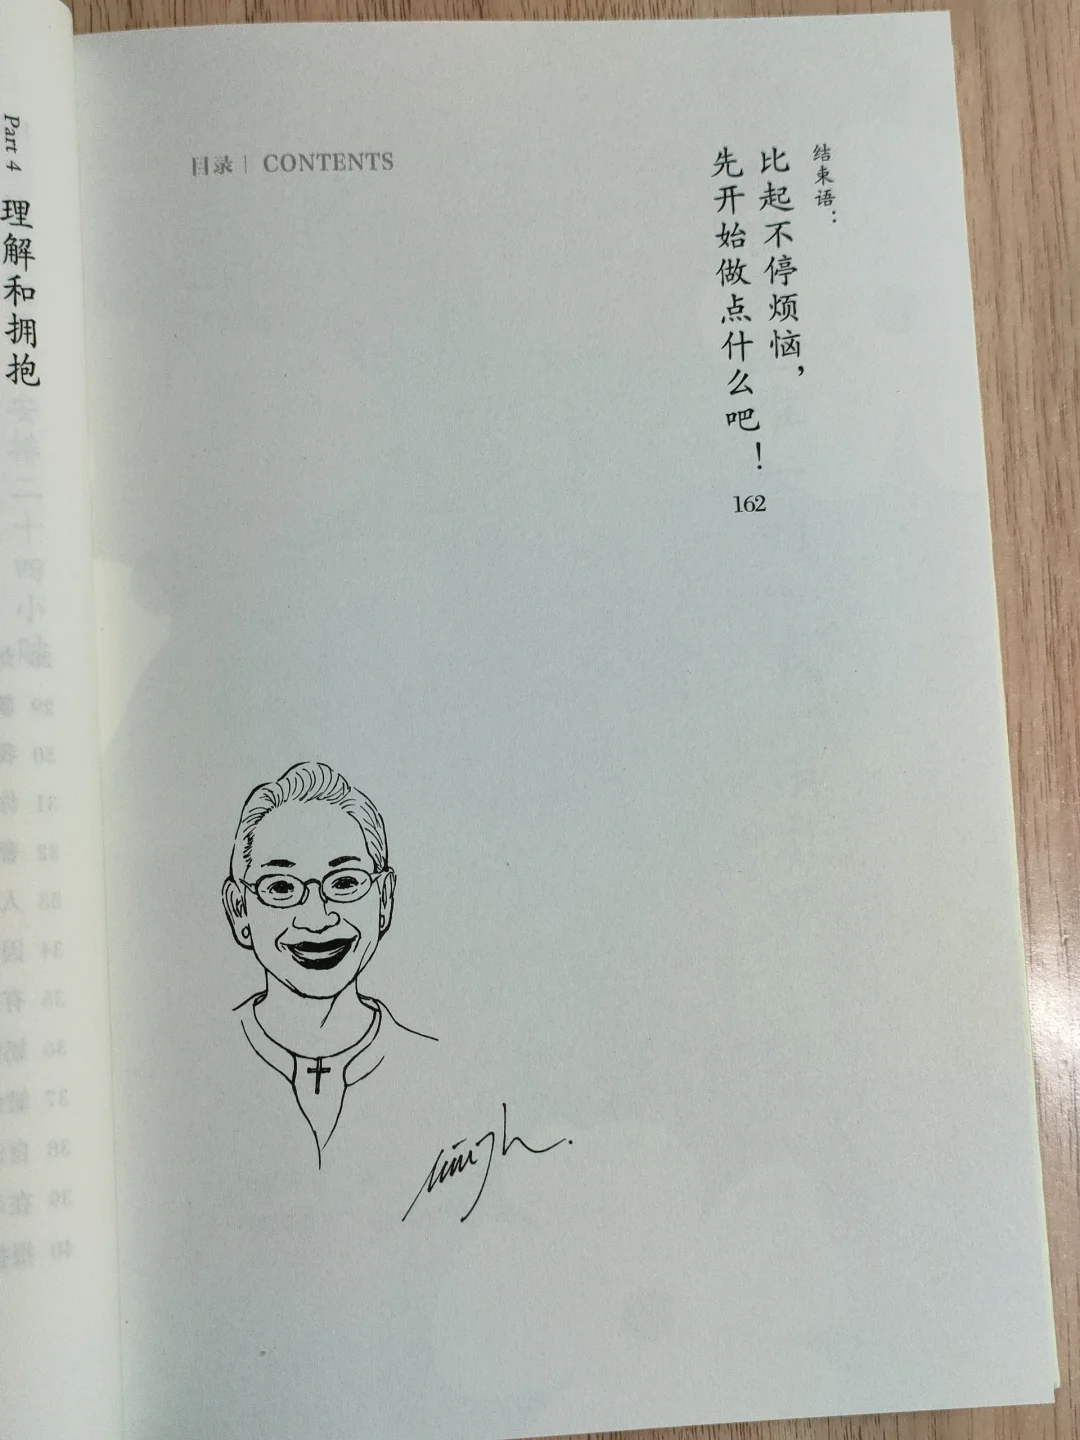 目录 | CONTENTS
结束语：
比起不停烦恼，
先开始做点什么吧！
162
Part 4
理解和拥抱